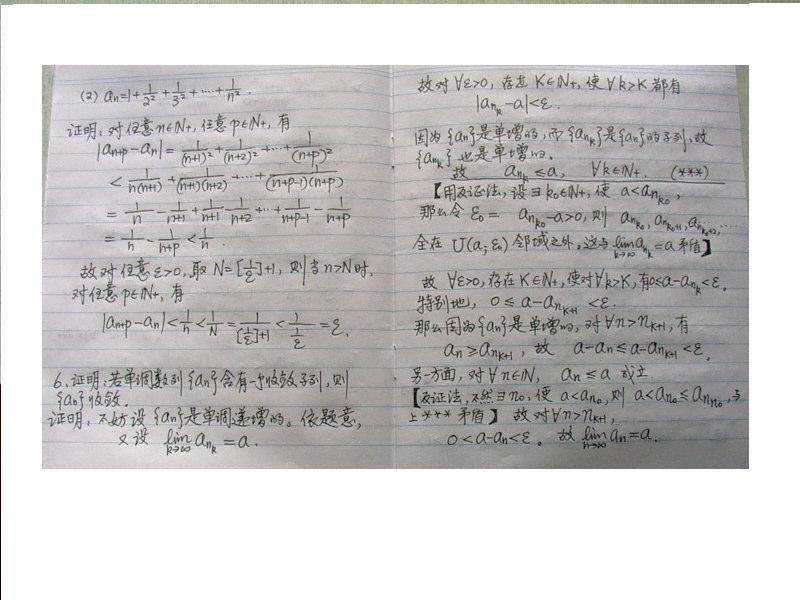 (2) an=1+1/2²+1/3²+……+1/n².
证明:对任意n∈N+,任意p∈N+,有
|an+p-an|=1/(n+1)²+1/(n+2)²+…+1/(n+p)²
<1/n(n+1)+1/(n+1)(n+2)+…+1/(n+p-1)(n+p)
=1/n-1/n+1+1/n+1-1/n+2+…+1/n+p-1-1/n+p
=1/n-1/n+p<1/n.
故对任意ε>0,取N=[1/ε]+1,则当n>N时,
对任意p∈N+,有
|an+p-an|<1/n<1/N=1/[1/ε]+1<1/1/ε=ε.
6.证明:若单调数列{an}含有一个收敛子列,则
{an}收敛.
证明:不妨设{an}是单调递增的。依题意,
又设 lim k→∞ ank=a.
故对∀ε>0,存在K∈N+,使∀k>K都有
|ank-a|<ε.
因为{an}是单增的,而{ank}是{an}的子列,故
{ank}也是单增的.
故 ank≤a, ∀k∈N+. (***)
【用反证法,设∃k0∈N+,使a<ank0,
那么令ε0=ank0-a>0,则ank0,ank0+1,ank0+2,……
全在U(a;ε0)邻域之外,这与lim k→∞ ank=a矛盾】
故∀ε>0,存在K∈N+,使对∀k>K,有0≤a-ank<ε.
特别地,0≤a-anK+1<ε.
那么因为{an}是单增的,对∀n>nK+1,有
an≥anK+1,故 a-an≤a-anK+1<ε.
另一方面,对∀n∈N, an≤a 成立
【反证法,不然∃n0,使a<an0,则a<an0≤ann0,与
上***矛盾】故对∀n>nK+1,
0<a-an<ε。故 lim n→∞ an=a.